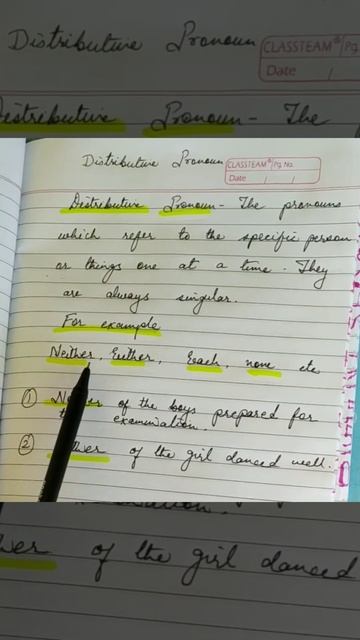 Distributive Pronoun CLASSTEAM® Pg.
Date / 
Distributive Pronoun - The
Distributive Pronoun CLASSTEAM® Pg. No.
Date / /
Distributive Pronoun - The pronouns
which refer to the specific person
or things one at a time. They
are always singular.
For example
Neither, Either, Each, none etc
① of the boys prepared for
examination.
② of the girl danced well.
of the girl danced